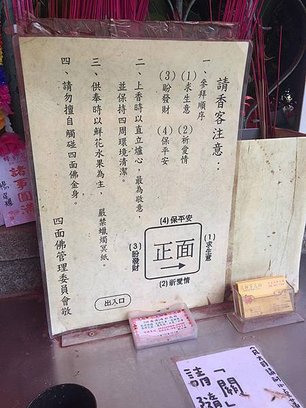 請香客注意：
一、參拜順序
(1)求生意 (2)祈愛情
(3)盼發財 (4)保平安
二、上香時以直立爐心，最為敬意，
並保持四周環境清潔。
三、供奉時以鮮花水果為主，嚴禁蠟燭冥紙。
四、請勿擅自觸碰四面佛金身。
四面佛管理委員會啟
(4)保平安
(1)求生意
(3)盼發財
正面
(2)祈愛情
出入口
請隨
「關